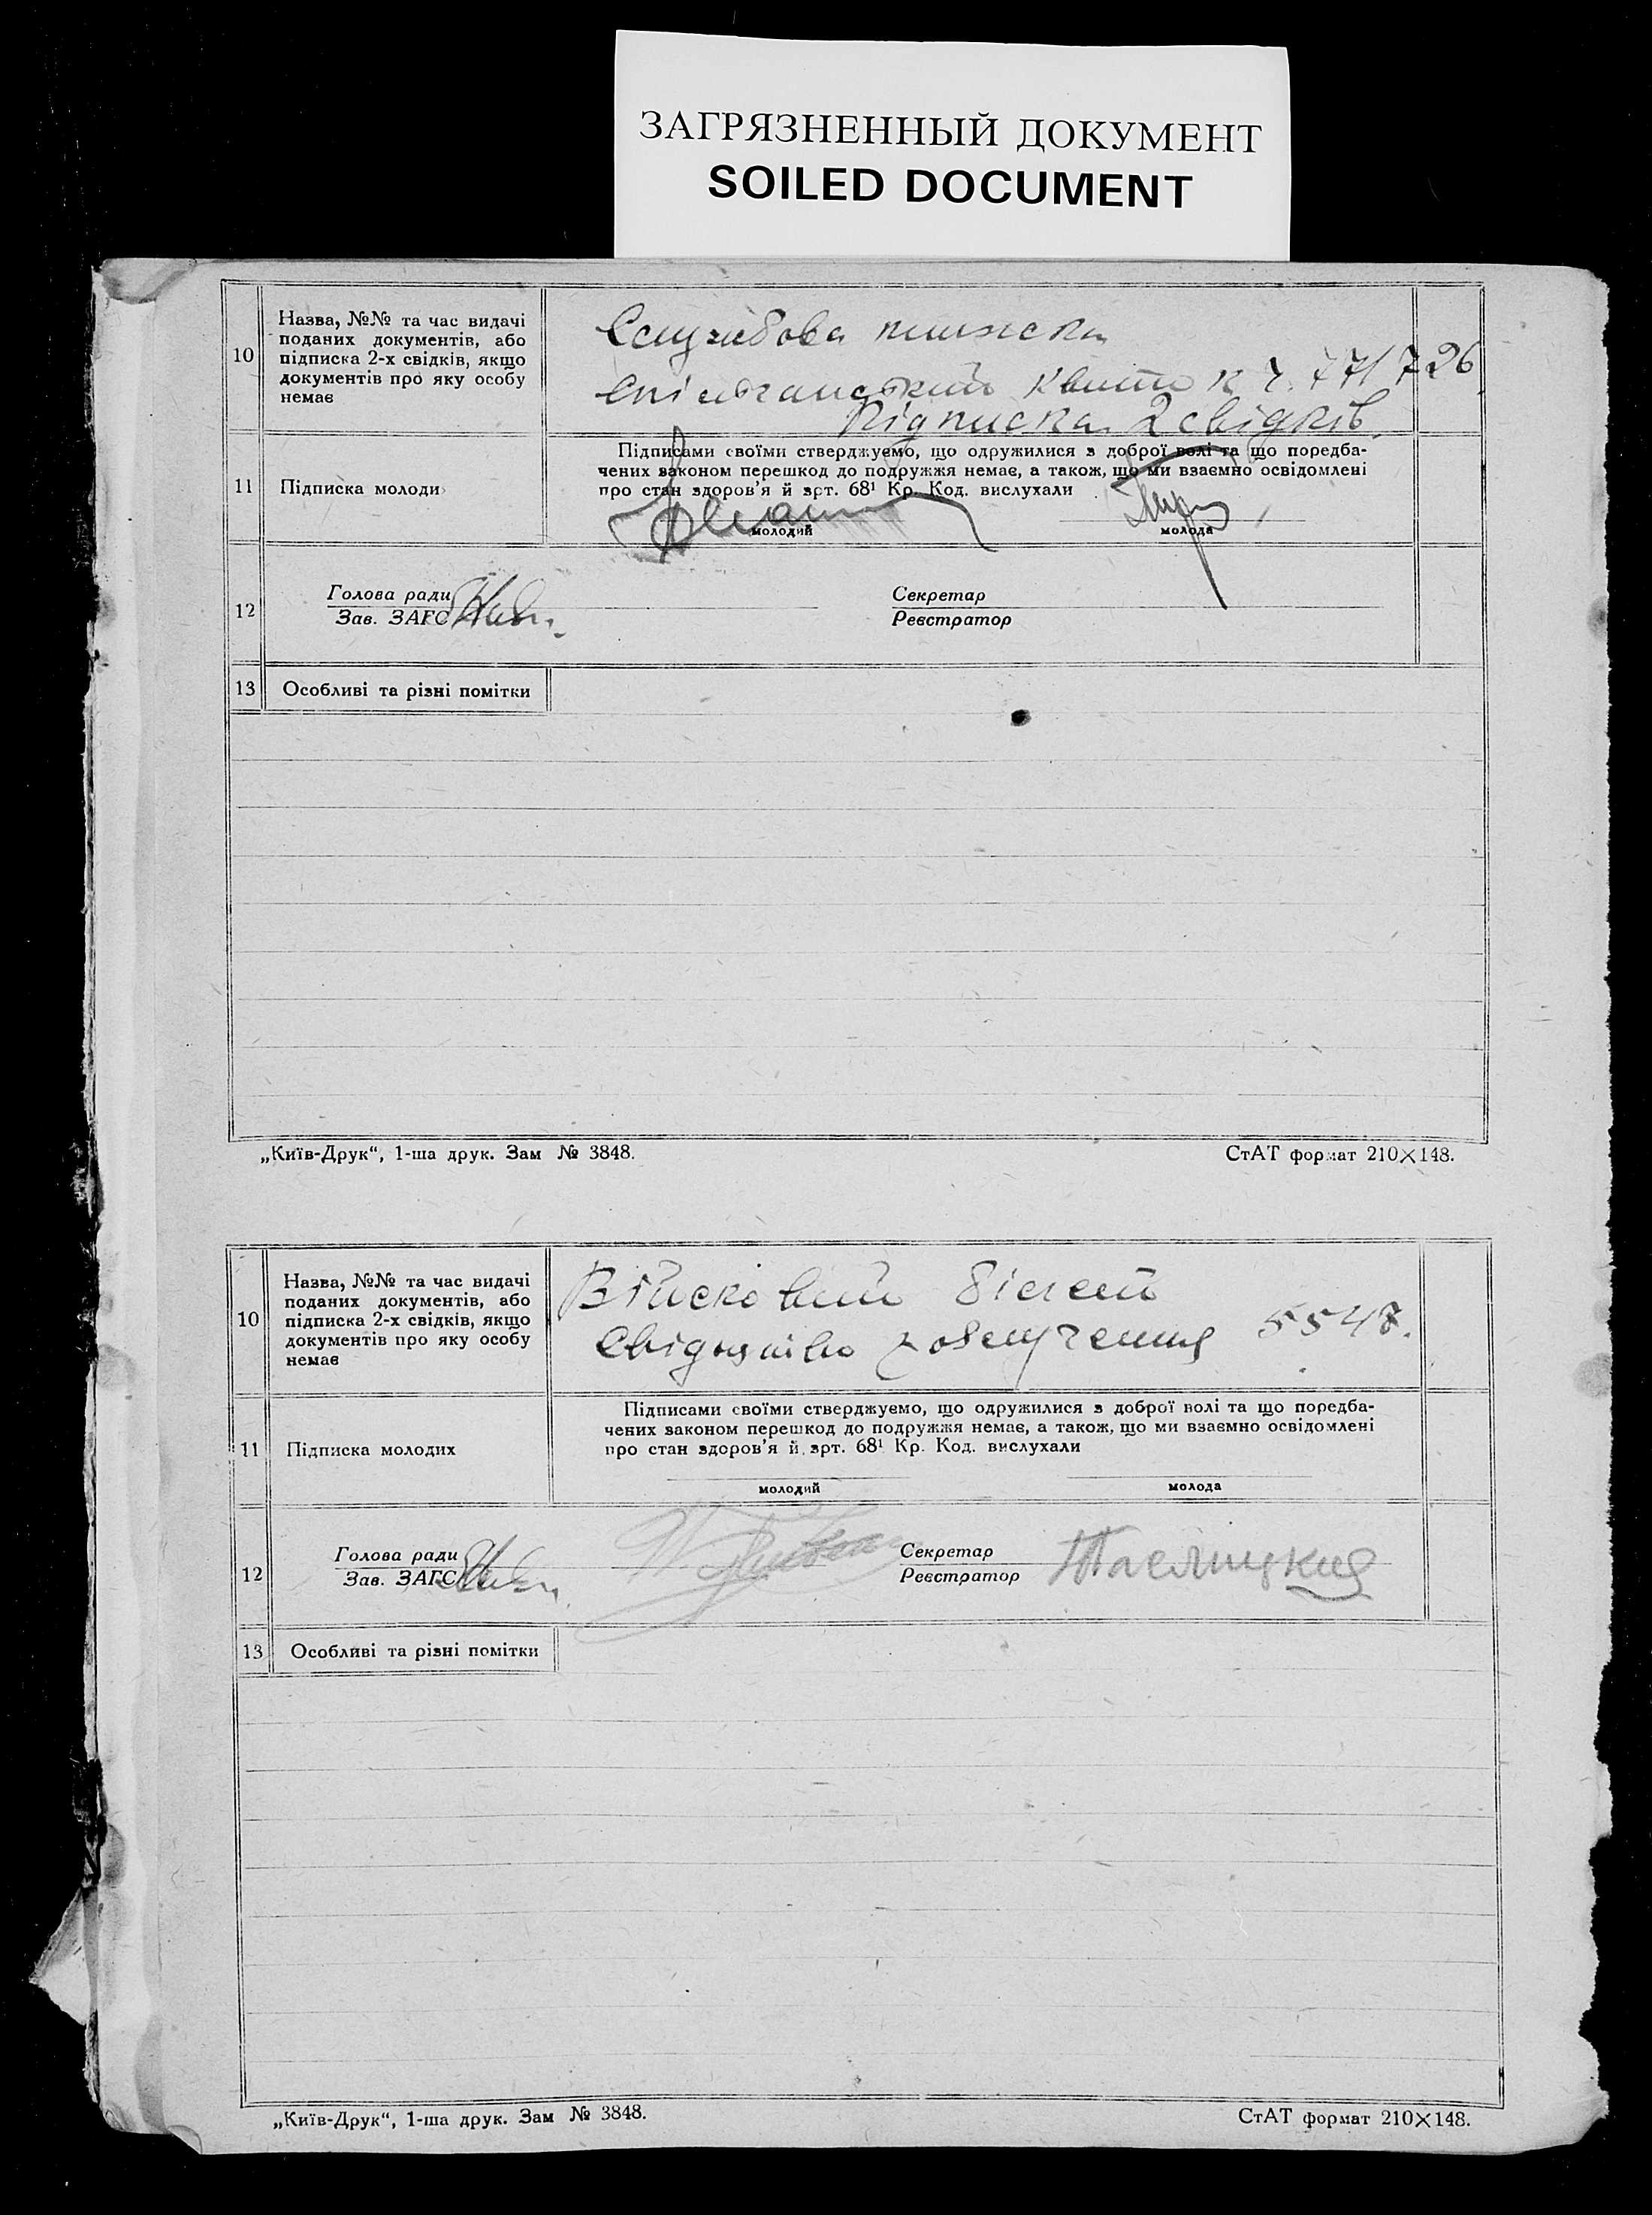 ЗАГРЯЗНЕННЫЙ ДОКУМЕНТ
SOILED DOCUMENT
10
Назва, №№ та час видачі
поданих документів, або
підписка 2-х свідків, якщо
документів про яку особу
немає
книжка
Спілчанський квиток 726
Підписка 2 свідків
11
Підписка молоди
Підписами своїми стверджуємо, що одружилися з доброї волі та що поредба-
чених законом перешкод до подружжя немає, а також, що ми взаємно освідомлені
про стан здоров'я й арт. 68¹ Кр. Код. вислухали
молодий
молода
12
Голова ради
Зав. ЗАГС
Секретар
Реєстратор
13
Особливі та різні помітки
„Київ-Друк“, 1-ша друк. Зам № 3848.
СтАТ формат 210×148.
10
Назва, №№ та час видачі
поданих документів, або
підписка 2-х свідків, якщо
документів про яку особу
немає
Військовий білет
5547.
11
Підписка молодих
Підписами своїми стверджуємо, що одружилися з доброї волі та що поредба-
чених законом перешкод до подружжя немає, а також, що ми взаємно освідомлені
про стан здоров'я й арт. 68¹ Кр. Код. вислухали
молодий
молода
12
Голова ради
Зав. ЗАГС
Секретар
Реєстратор
13
Особливі та різні помітки
„Київ-Друк“, 1-ша друк. Зам № 3848.
СтАТ формат 210×148.